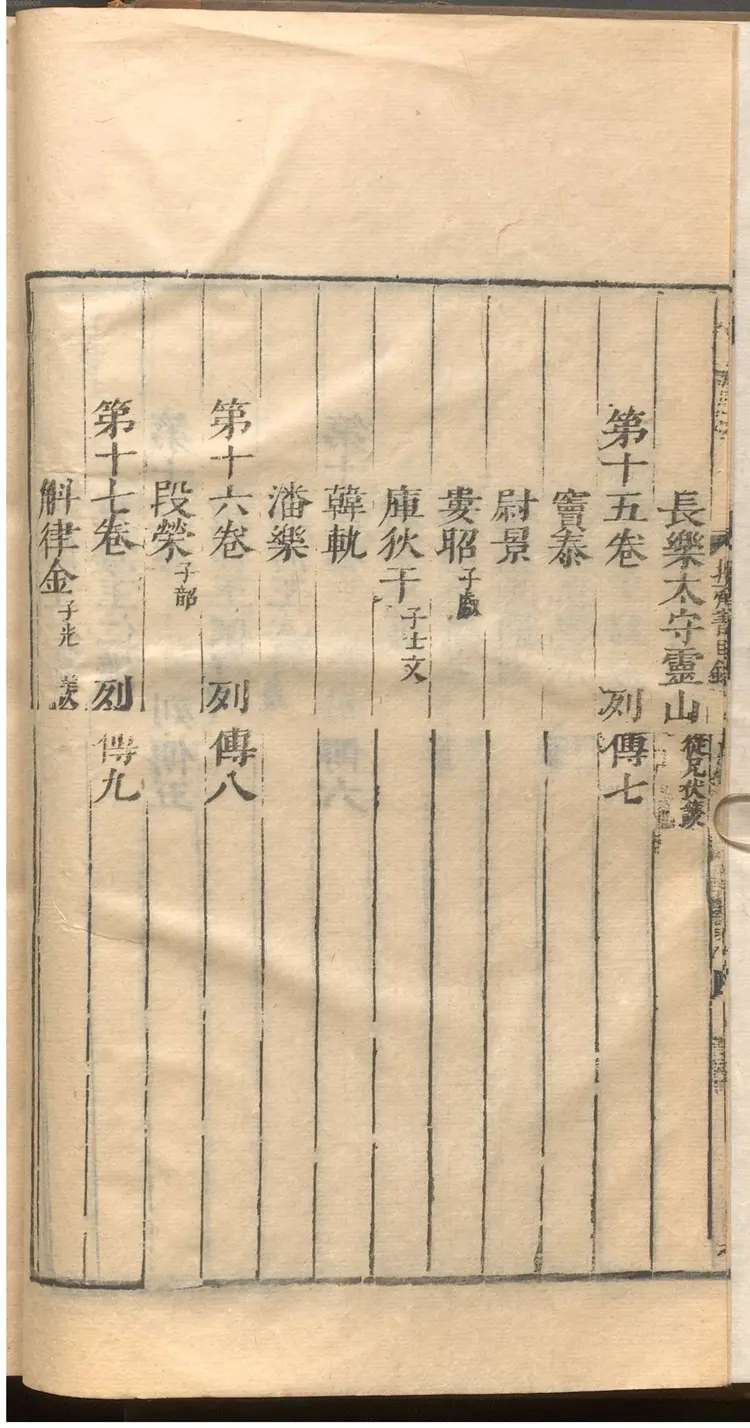 長樂太守靈山 從兄伏護
第十五卷 列傳七
竇泰
尉景
婁昭 子叡
庫狄干 子士文
韓軌
潘樂
第十六卷 列傳八
段榮 子韶
第十七卷 列傳九
斛律金 子光 羨